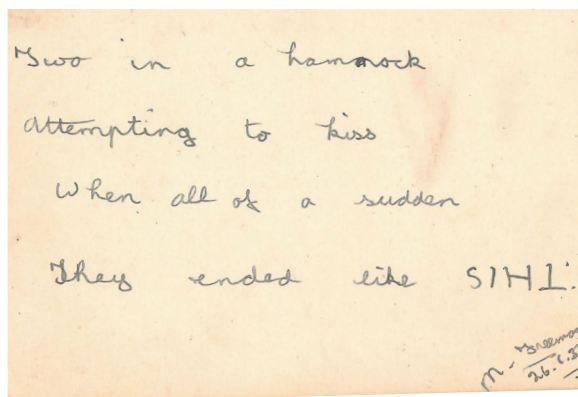 Two in a hammock
Attempting to kiss
When all of a sudden
They ended like SIH⊥.
M. Freeman